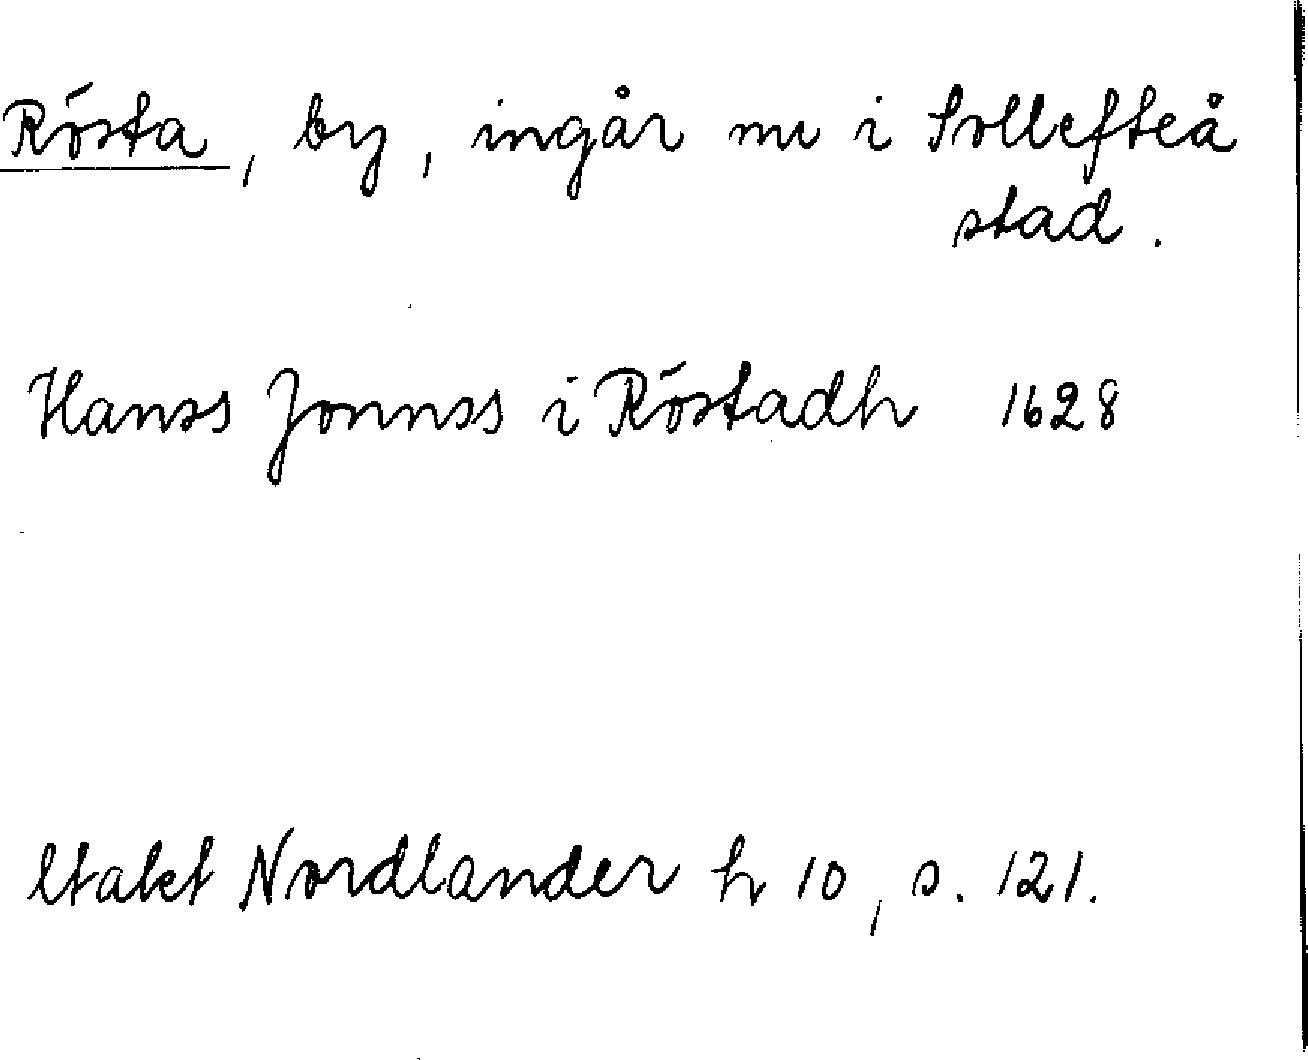 Rösta, by, ingår nu i Sollefteå
stad.
Hanss Jonnss i Röstadh 1628
Nordlander h 10, s. 121.